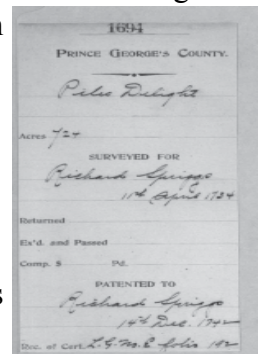 1694
PRINCE GEORGE'S COUNTY.
Piles Delight
Acres 724
SURVEYED FOR
Richard Spriggs
11th April 1724
Returned
Ex'd. and Passed
Comp. $ Pd.
PATENTED TO
Richard Spriggs
14th Dec. 1742
Rec. of Cert. L.G. No. E folio 182